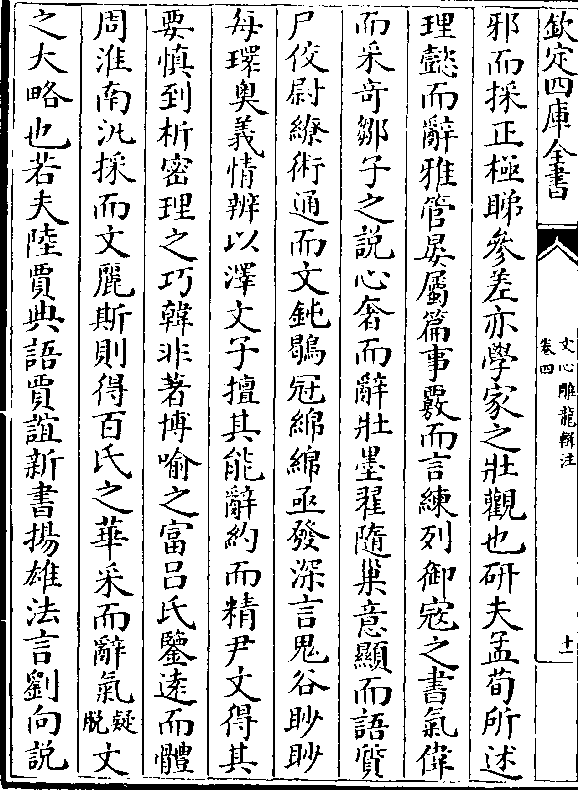 欽定四庫全書
文心雕龍輯注
卷四
十一
邪而採正極睇參差亦學家之壯觀也研夫孟荀所述
理懿而辭雅管晏屬篇事覈而言練列御寇之書氣偉
而采奇鄒子之說心奢而辭壯墨翟隨巢意顯而語質
尸佼尉繚術通而文鈍鶡冠綿綿亟發深言鬼谷眇眇
每環奥義情辨以澤文子擅其能辭約而精尹文得其
要慎到析密理之巧韓非著博喻之富吕氏鑒遠而體
周淮南汎採而文麗斯則得百氏之華采而辭氣疑脱文
之大略也若夫陸賈典語賈誼新書揚雄法言劉向說